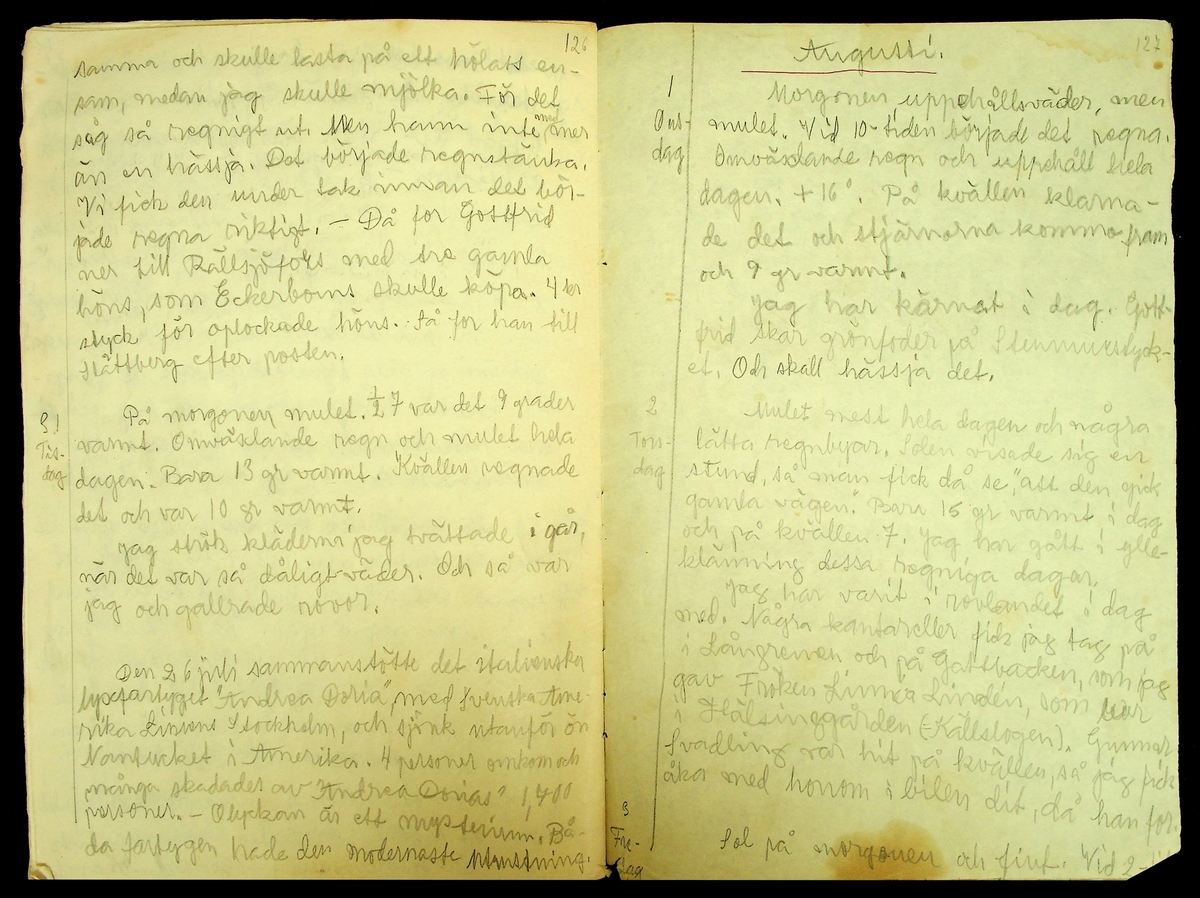 126
samma och skulle lasta på ett hölass en-
sam, medan jag skulle mjölka. För det
såg så regnigt ut. Men hann inte med mer
än en hässja. Det började regnstänka.
Vi fick den under tak innan det bör-
jade regna riktigt. — Då for Gottfrid
ner till Rällsjöfors med tre gamla
höns, som Eckerboms skulle köpa. 4 kr
styck för oplockade höns. Så for han till
Slättberg efter posten.
31
Tis-
dag
På morgonen mulet. ½ 7 var det 9 grader
varmt. Omväxlande regn och mulet hela
dagen. Bara 13 gr varmt. Kvällen regnade
det och var 10 gr varmt.
Jag strök kläderna jag tvättade i går,
när det var så dåligt väder. Och så var
jag och gallrade rovor.
Den 26 juli sammanstötte det italienska
lyxfartyget "Andrea Doria", med Svenska Ame-
rika Liniens Stockholm, och sjönk utanför ön
Nantucket i Amerika. 4 personer omkom och
många skadades av "Andrea Dorias" 1,400
personer. — Olyckan är ett mysterium. Bå-
da fartygen hade den modernaste utrustning.
127
Augusti.
1
Ons-
dag
Morgonen uppehållsväder, men
mulet. Vid 10-tiden började det regna.
Omväxlande regn och uppehåll hela
dagen. +16°. På kvällen klarna-
de det och stjärnorna kommo fram
och 9 gr varmt.
Jag har kärnat i dag. Gott-
frid skar grönfoder på Stenmurstyck-
et. Och skall hässja det.
2
Tors-
dag
Mulet mest hela dagen och några
lätta regnbyar. Solen visade sig en
stund, så man fick då se, "att den gick
gamla vägen". Bara 15 gr varmt i dag
och på kvällen 7. Jag har gått i ylle-
klänning dessa regniga dagar.
Jag har varit i rovlandet i dag
med. Några kantareller fick jag tag på
i Långrenen och på Gattbacken, som jag
gav Fröken Linnea Lindén, som bor
i Hälsinggården (-Källslogen). Gunnar
Svadling var hit på kvällen, så jag fick
åka med honom i bilen dit, då han for.
3
Fre-
dag
Sol på morgonen och fint. Vid 2-